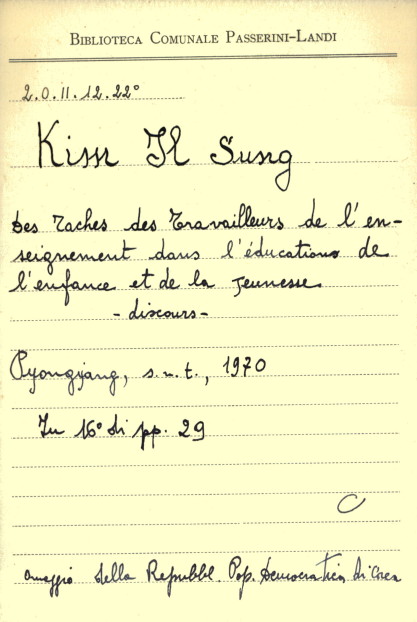 BIBLIOTECA COMUNALE PASSERINI-LANDI
2.0.II.12.22°
Kim Il Sung
Des Taches des Travailleurs de l'en-
seignement dans l'éducations de
l'enfance et de la jeunesse
- discours -
Pyongyang, s.n.t., 1970
In 16° di pp. 29
C
omaggio della Repubbl. Pop. Democratica di Corea